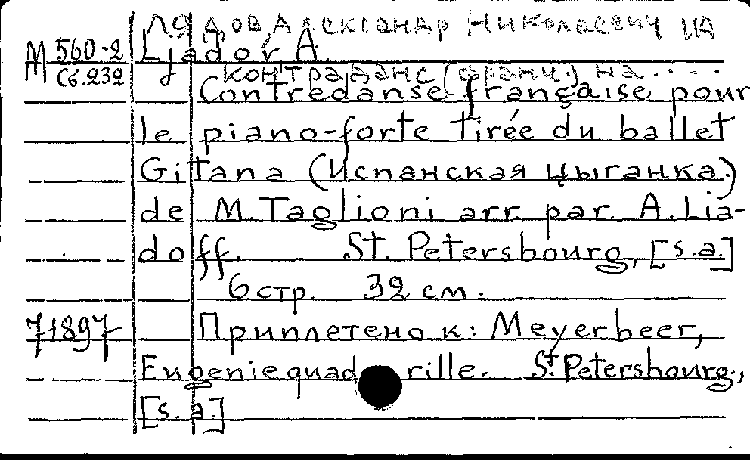 Лядов, Александр Николаевич
М 560-2 Ljadov A.
Сб.232 контраданс (франц.) на.....
Contredanse française pour
le piano-forte tirée du ballet
Gitana (Испанская цыганка)
de M. Taglioni arr par A. Lia-
doff. St. Petersbourg, [s.a.]
6 стр. 32 см.
71897 Приплетено к: Meyerbeer,
Eugenie quadrille. St. Petersbourg,
[s.a.]